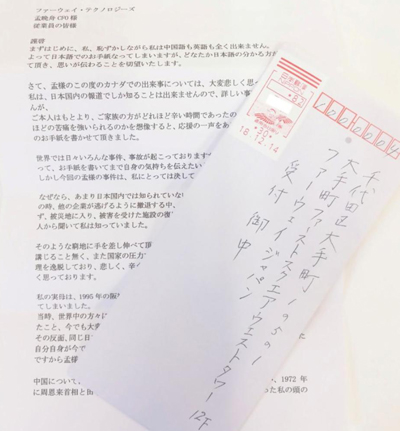 ファーウェイ・テクノロジーズ
孟晩舟 CFO 様
従業員の皆様
謹啓
まずはじめに、私、恥ずかしながら私は中国語も英語も全く出来ません。
よって日本語でのお手紙なってしまいますが、どなたか日本語の分かる方が
て頂き、思いが伝わることを切望いたします。
さて、孟様のこの度のカナダでの出来事については、大変悲しく思っ
私は、日本国内の報道でしか知ることは出来ませんので、詳しい事
んが、
ご本人はもとより、ご家族の方がどれほど辛い時間であったの
ほどの苦痛を強いられるのかを想像すると、応援の一声をあ
のお手紙を書かせて頂きました。
世界では日々いろんな事件、事故が起こっておりますが
って、お手紙を書いてまで自身の気持ちを伝えたい
しかし今回の孟様の事件は、私にとっては決して
なぜなら、あまり日本国内では知られていな
の時、他の企業が逃げるように撤退する中、
ず、被災地に入り、被害を受けた施設の復
人から聞いて私は知っていました。
そのような窮地に手を差し伸べて頂
講じること無く、また国家の圧力
理を逸脱しており、悲しく、辛
く思っております。
私の実母は、1995 年の阪
てしまいました。
当時、世界中の方々に
たこと、今でも大変
その反面、同じ目
自分自身が今で
ですから孟様
中国について、
、1972 年
に周恩来首相と
った私の頭の
日本郵便
18.12.14
0000004
千代田区大手町1-5-1
大手町ファーストスクエアウェストタワー12F
ファーウェイジャパン
受付 御中